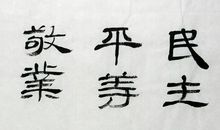 民主
平等
敬業